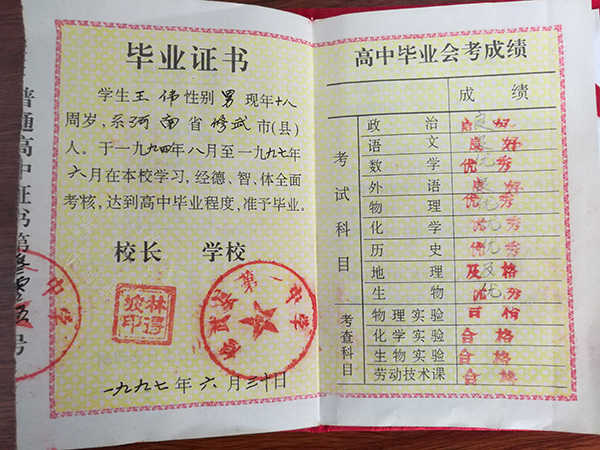 毕业证书
学生王伟性别男现年十八
周岁，系河南省修武市(县)
人。于一九九四年八月至一九九七年
六月在本校学习，经德、智、体全面
考核，达到高中毕业程度，准予毕业。
校长 学校
林
印
修武县第一中学
一九九七年六月三十日
普通高中证书第
号
中学
高中毕业会考成绩
成绩
考试科目
政治 良好
语文 良好
数学 优秀
外语 良好
物理 优秀
化学 优秀
历史 优秀
地理 及格
生物 优秀
考查科目
物理实验 合格
化学实验 合格
生物实验 合格
劳动技术课 合格